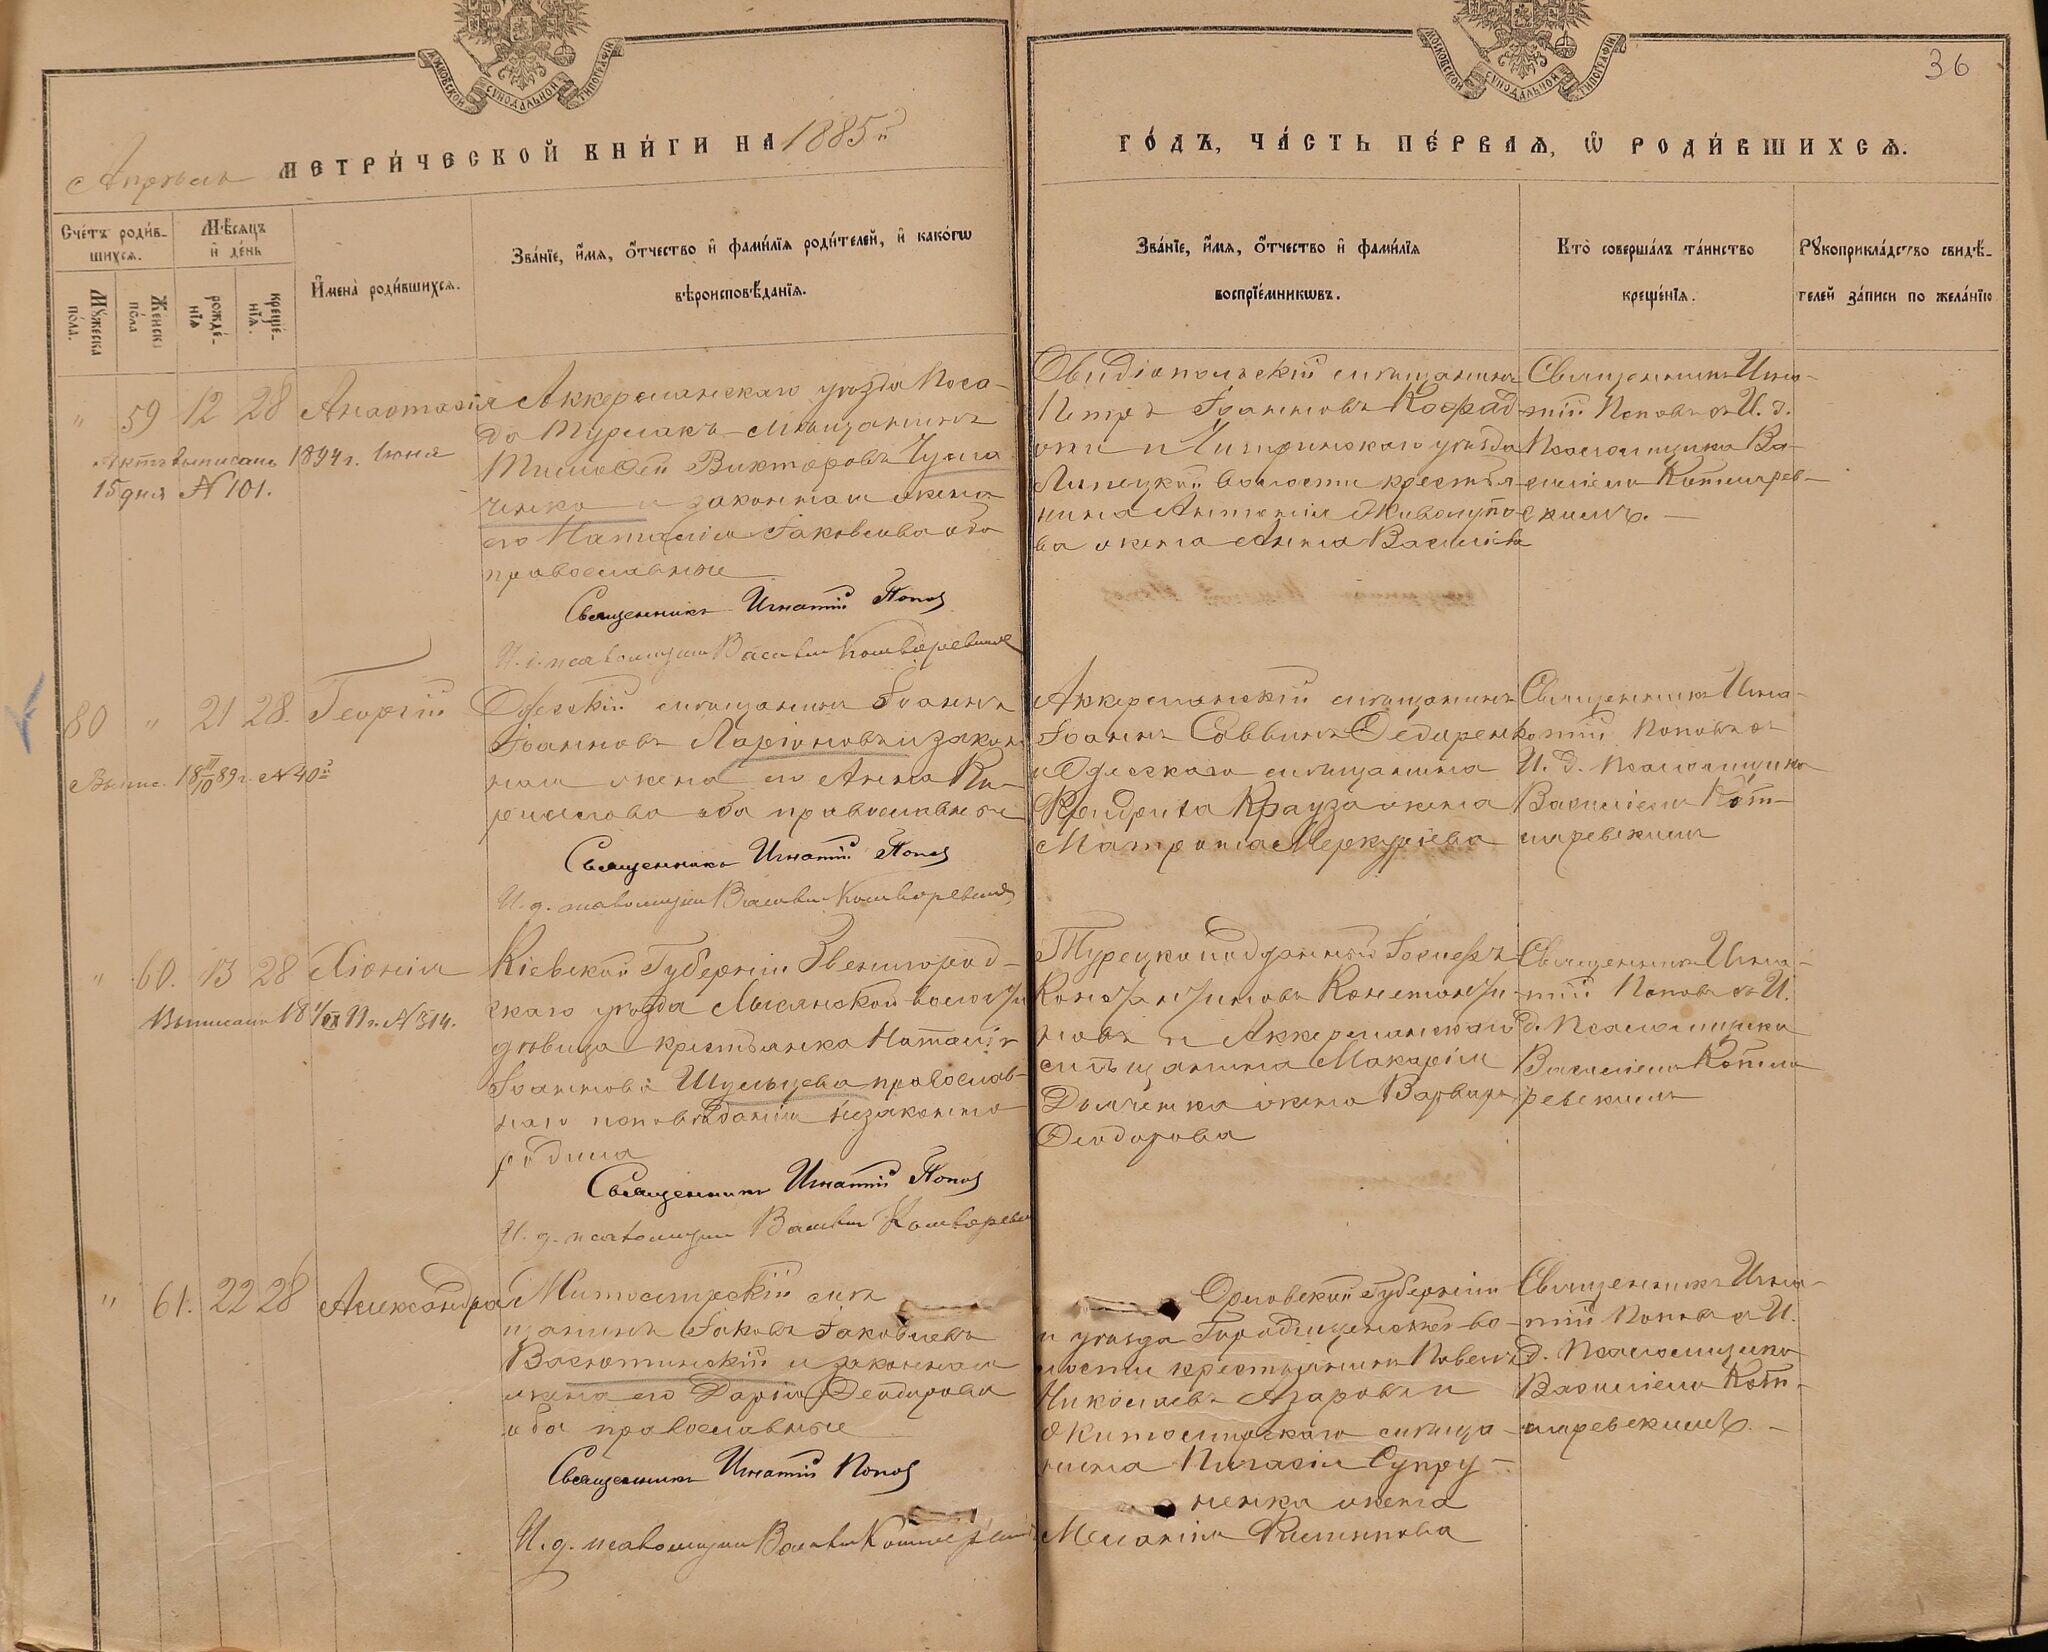 МОСКОВСКОЙ СѴНОДАЛЬНОЙ ТИПОГРАФІИ
МОСКОВСКОЙ СѴНОДАЛЬНОЙ ТИПОГРАФІИ
36
Апрель
МЕТРИ́ЧЕСКОЙ КНИ́ГИ НА 1885й
ГО́ДЪ, ЧА́СТЬ ПЕ́РВАЯ, Ѿ РОДИ́ВШИХСЯ.
Сче́тъ роди́в-
шихся.
Мѣ́сяцъ
и де́нь
Мꙋжеска по́ла.
Же́нска по́ла
рожде́-нїя
креще́-нїя.
Имена̀ роди́вшихся.
Зва́нїе, и́мя, ѻ́тчество и фами́лїя роди́телей, и како́гѡ
вѣроисповѣ́данїя.
Зва́нїе, и́мя, ѻ́тчество и фами́лїя
воспрїе́мникѡвъ.
Кто̀ соверша́лъ та́инство
креще́нїя.
Рꙋкоприкла́дство свидѣ́-
телей за́писи по жела́нїю
" 59 12 28 Анастасія
Актъ выписанъ 1894 г. Іюня
15 дня № 101.
Аккерманскаго уѣзда Поса-
да Турлакъ мѣщанинъ
Тимоѳей Викторовъ
ченко и законная жена
его Наталія Іаковлева оба
православные
Священникъ Игнатій Попов
И. д. псаломщика Василій Котляревский
Овидіопольскій мѣщанинъ
Петръ Іоанновъ
Липецкой волости крестья-
нина Антонія
ва жена Анна Василіева
Священникъ Игна-
тій Поповъ съ И. д.
Псаломщика Ва-
силіемъ Котлярев-
скимъ. —
80 " 21 28. Георгій
Выпис. № 40й
Одесскій мѣщанинъ Іоаннъ
Іоанновъ Ларіоновъ и закон-
ная жена его Анна Ки-
риллова оба православные
Священникъ Игнатій Попов
И. д. псаломщика Василій Котляревский
Аккерманскій мѣщанинъ
Іоаннъ Саввинъ Ѳедоренко
и Одесскаго мѣщанина
Фридриха Крауза жена
Матрона Меркуріева
Священникъ Игна-
тій Поповъ съ
И. д. Псаломщика
Василіемъ Кот-
ляревскимъ
" 60. 13 28 Хіонія
Выписано № 314.
Кіевской Губерніи Звенигород-
скаго уѣзда Лысянской волости
дѣвица крестьянка Наталія
Іоаннова Шульцева православ-
наго исповѣданія незаконно
родила
Священникъ Игнатій Попов
И. д. псаломщика Василій Котляревс
Турецкоподданный Іосифъ
Константиновъ Константи-
новъ и Аккерманскаго
мѣщанина Макарія
Демченка жена Варвара
Ѳеодорова
Священникъ Игна-
тій Поповъ съ И.
д. Псаломщика
Василіемъ Котля
ревскимъ
" 61. 22 28 Александра
Житомирскій мѣ
щанинъ Іаковъ Іаковлевъ
Васютинскій и законная
жена его Дарія Ѳеодорова
оба православные
Священникъ Игнатій Попов
И. д. псаломщика Василій Котляревский
Орловской Губерніи
и уѣзда Городищенской во-
лости крестьянинъ Павелъ
Николаевъ Азаровъ и
Житомирскаго мѣща-
нина Пигасія Супру-
ненка жена
Меланія Филиппова
Священникъ Игна-
тій Поповъ съ И.
д. Псаломщика
Василіемъ Кот-
ляревскимъ. —